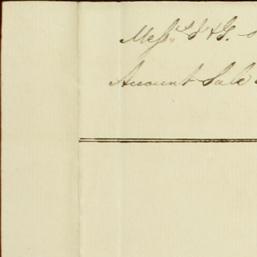 Messrs. S & G.
Account Sale